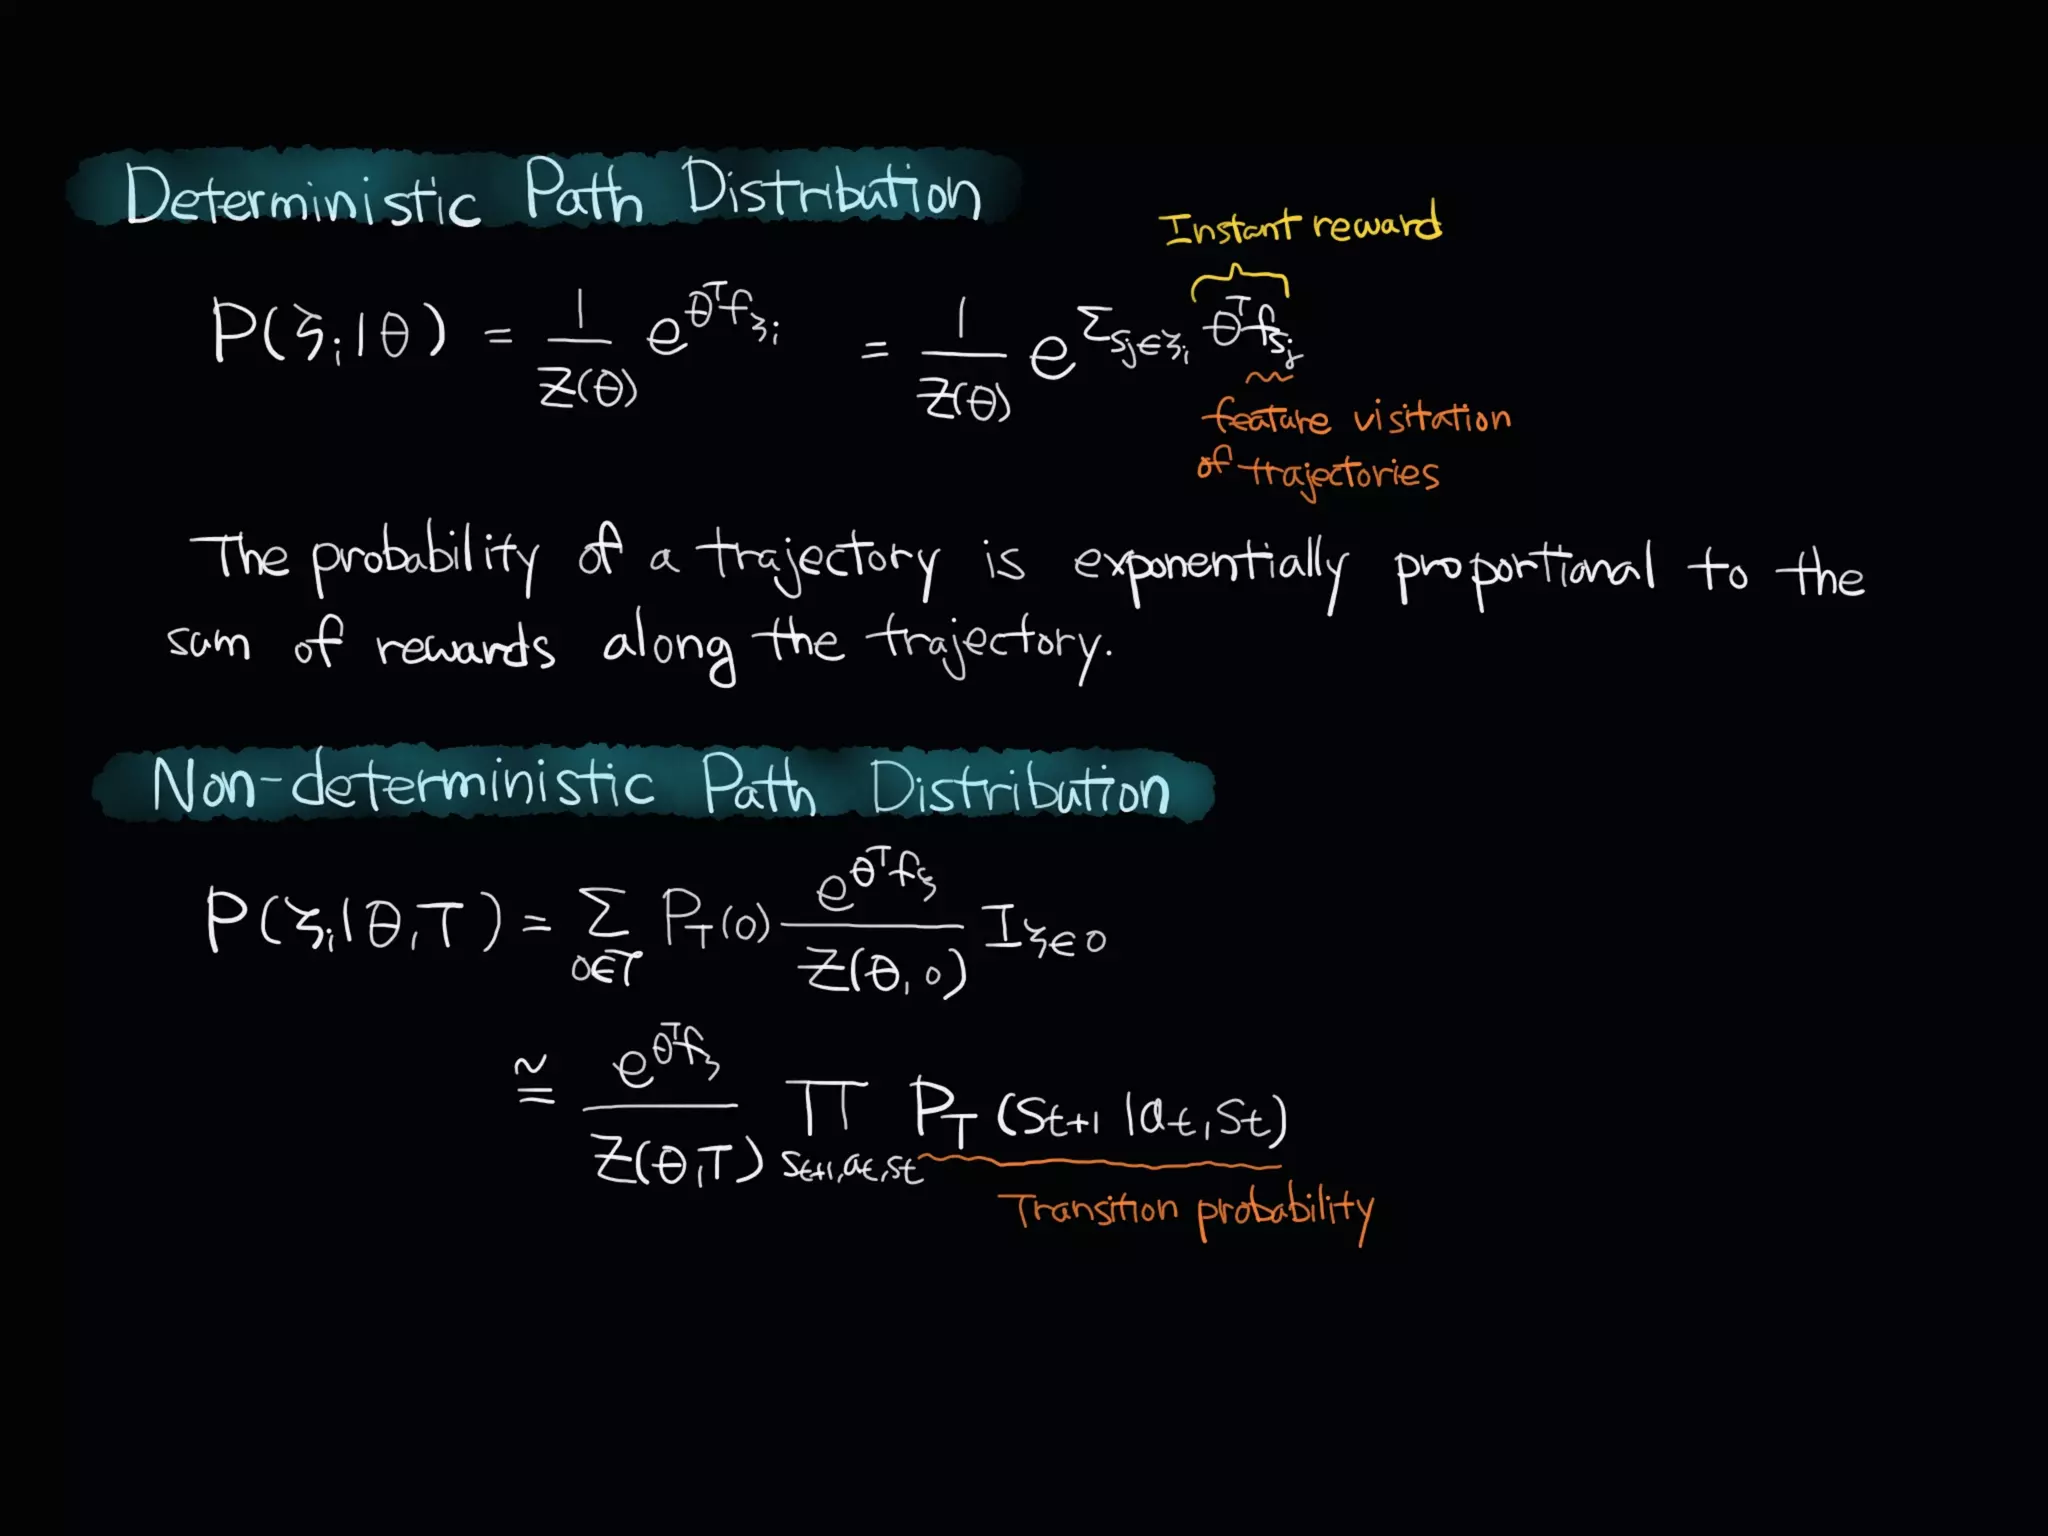 Deterministic Path Distribution
Instant reward
P(ζᵢ|θ) = 1/Z(θ) e^{θᵀf_{ζᵢ}} = 1/Z(θ) e^{Σ_{sⱼ∈ζᵢ} θᵀf_{sⱼ}}
feature visitation
of trajectories
The probability of a trajectory is exponentially proportional to the
sum of rewards along the trajectory.
Non-deterministic Path Distribution
P(ζᵢ|θ,T) = Σ_{o∈T} P_T(o) e^{θᵀf_ζ}/Z(θ,o) I_{ζ∈o}
≅ e^{θᵀf_ζ}/Z(θ,T) Π_{s_{t+1},a_t,s_t} P_T(s_{t+1}|a_t,s_t)
Transition probability